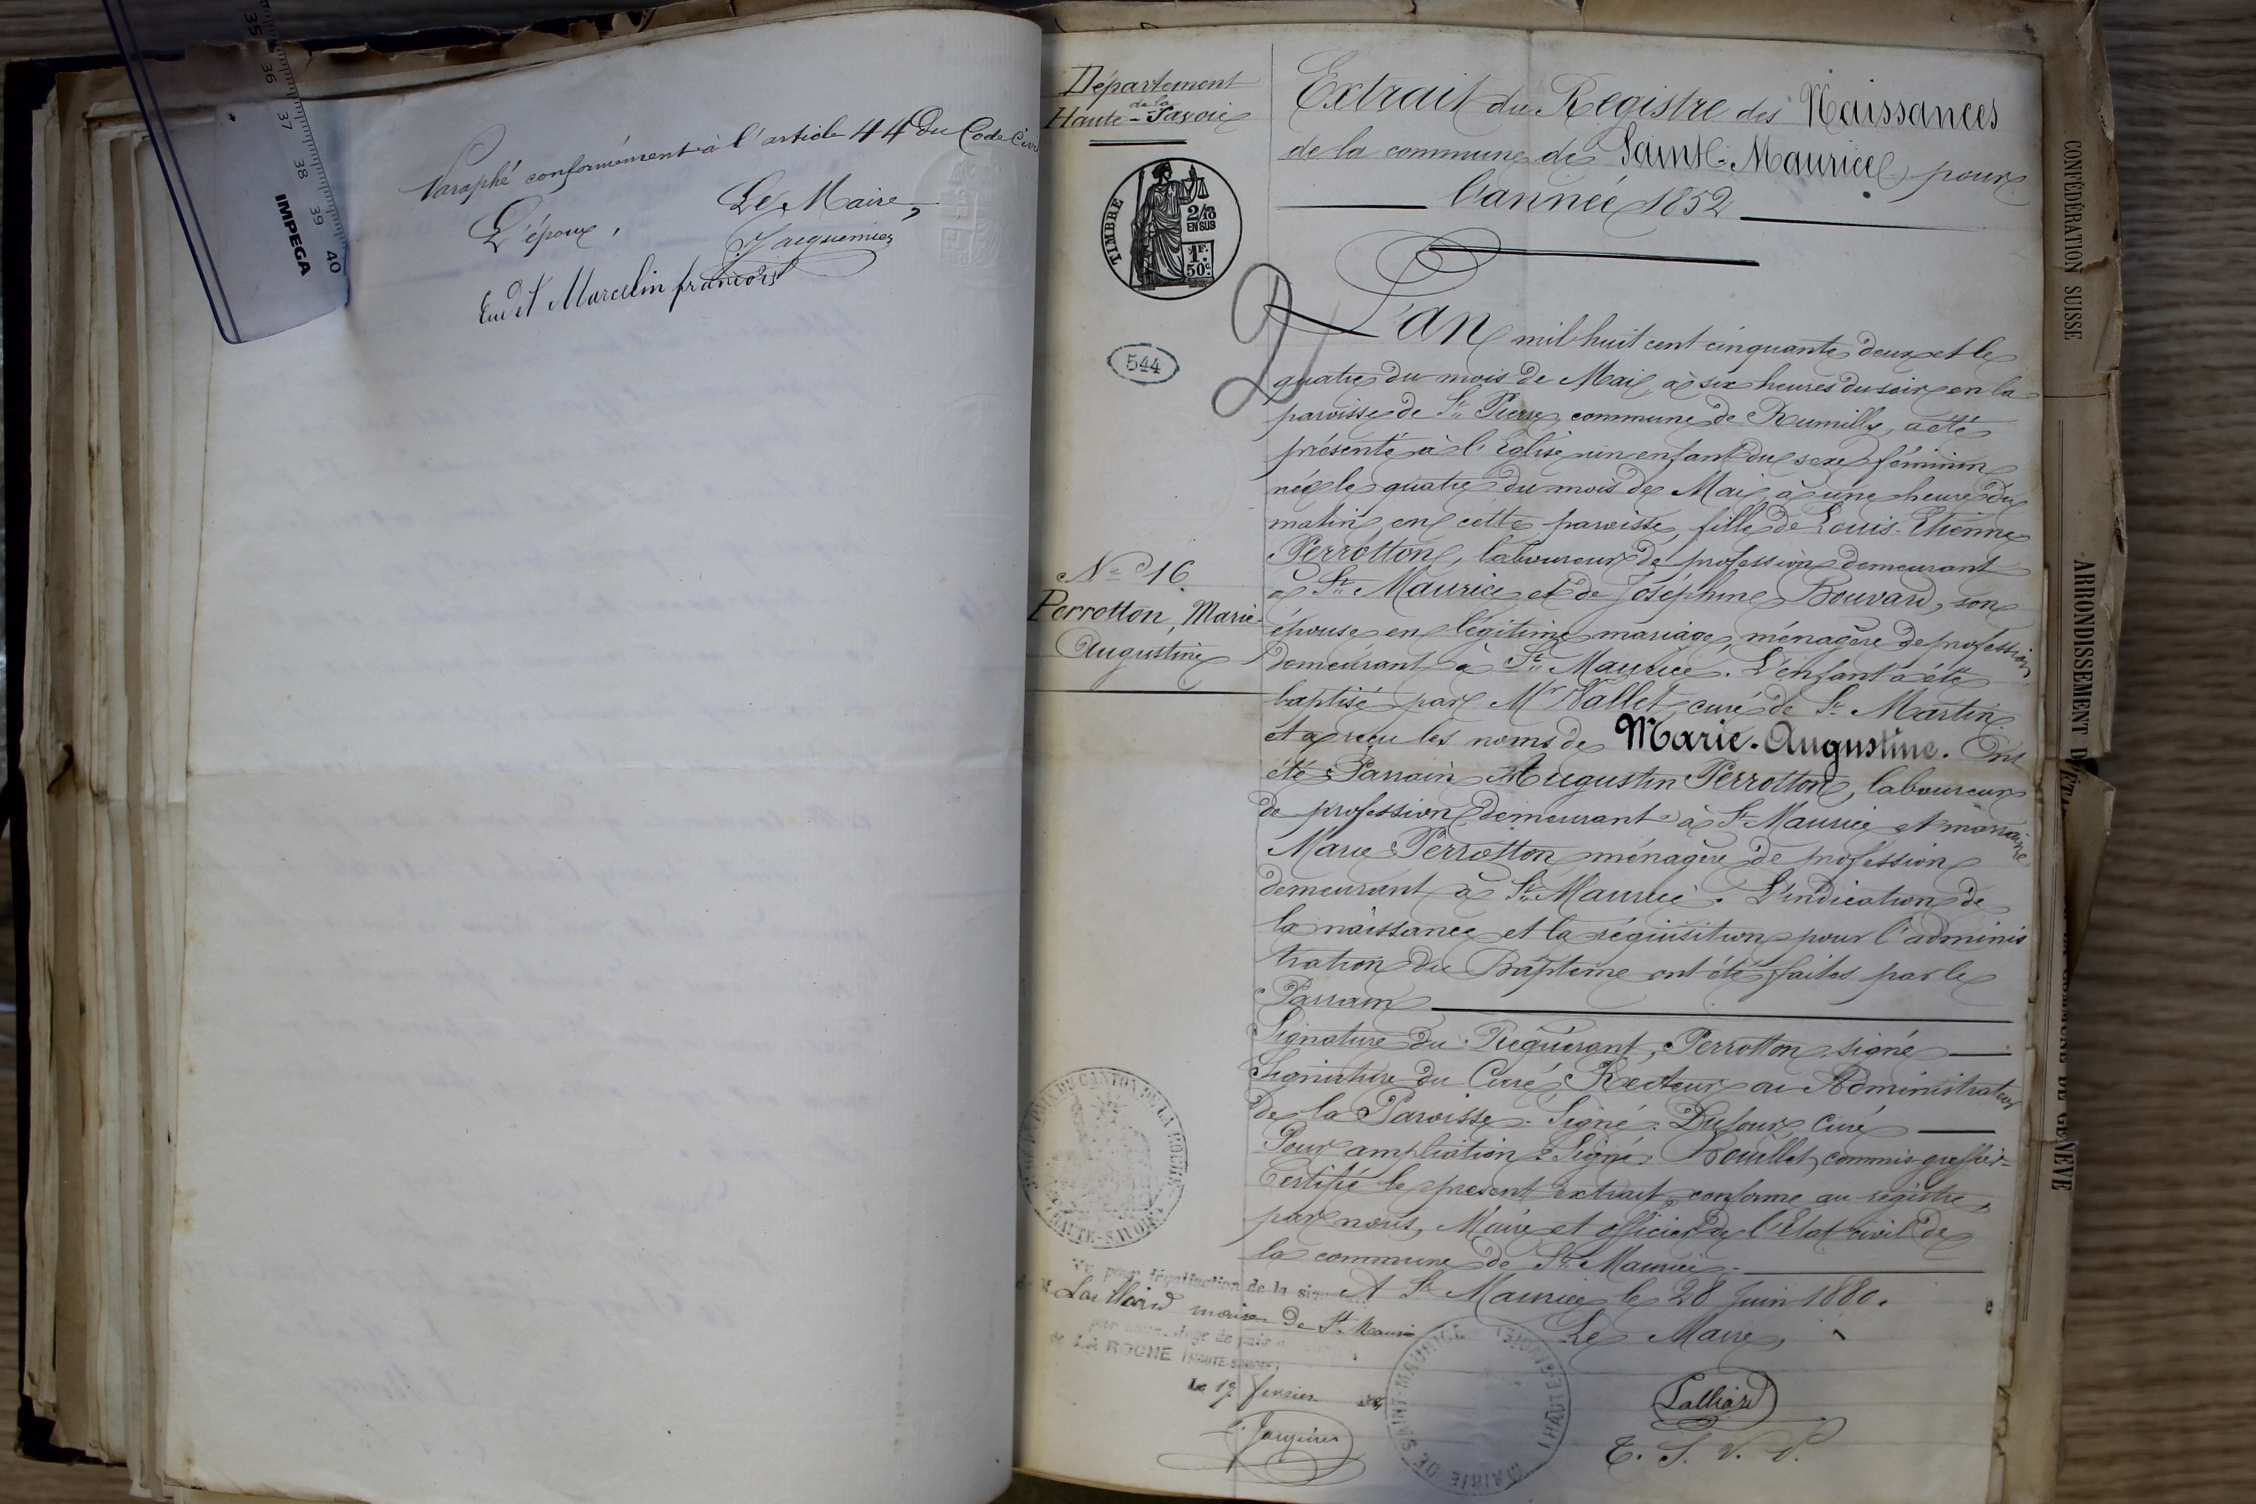 Paraphé conformément à l'article 44 du Code Civil
L'époux,
Le Maire,
Jacquemier
Marcelin françois
Département
de la
Haute-Savoie
TIMBRE
2/10
EN SUS
1F.
50c.
544
N° 16
Perrotton, Marie-
Augustine
Extrait du Registre des Naissances
de la commune de Saint-Maurice pour
l'année 1852
L'an mil huit cent cinquante deux et le
quatre du mois de Mai à six heures du soir en la
paroisse de St Pierre, commune de Rumilly, a été
présenté à l'Eglise un enfant du sexe féminin
née le quatre du mois de Mai à une heure du
matin en cette paroisse, fille de Louis-Etienne
Perrotton, laboureur de profession demeurant
à St Maurice et de Joséphine Bouvard, son
épouse en légitime mariage, ménagère de profession
demeurant à St Maurice. L'enfant a été
baptisé par Mr Vallet curé de St Martin
et a reçu les noms de Marie-Augustine. Ont
été Parrain Augustin Perrotton, laboureur
de profession demeurant à St Maurice et marraine
Marie Perrotton ménagère de profession
demeurant à St Maurice. L'indication de
la naissance et la réquisition pour l'adminis
tration du Baptême ont été faites par le
Parrain
Signature du Requérant, Perrotton signé
Signature du Curé, Recteur ou Administrateur
de la Paroisse. Signé: Dufour, Curé
Pour ampliation: Signé Bouillet, commis-greffier
Certifié le présent extrait conforme au registre,
par nous, Maire et officier de l'Etat civil de
la commune de St Maurice.
A St Maurice le 28 Juin 1880.
Le Maire,
Lalliard
T. S. V. P.
DU CANTON DE LA ROCHE
HAUTE-SAVOIE
Vu pour légalisation de la
maire de St Maurice
par nous, Juge de paix
de LA ROCHE (HAUTE-SAVOIE)
Le 19 fevrier
MAIRIE DE SAINT-MAURICE (HAUTE-SAVOIE)
CONFÉDÉRATION SUISSE
ARRONDISSEMENT D'ÉTA
DE GENÈVE
35 36 37 38 39 40
IMPEGA